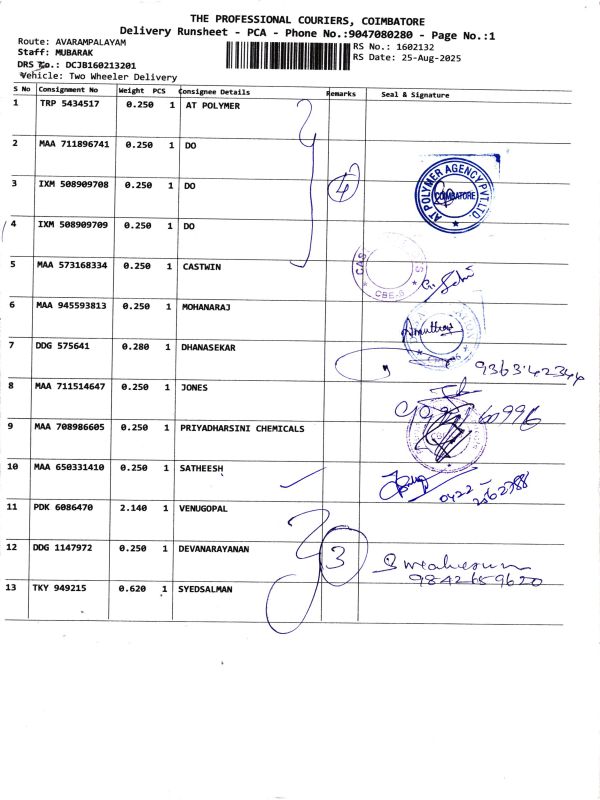 THE PROFESSIONAL COURIERS, COIMBATORE
Delivery Runsheet - PCA - Phone No.:9047080280 - Page No.:1
Route: AVARAMPALAYAM
Staff: MUBARAK
DRS No.: DCJB160213201
Vehicle: Two Wheeler Delivery
RS No.: 1602132
RS Date: 25-Aug-2025
S No Consignment No Weight PCS Consignee Details Remarks Seal & Signature
1 TRP 5434517 0.250 1 AT POLYMER
2 MAA 711896741 0.250 1 DO
3 IXM 508909708 0.250 1 DO
4
AT POLYMER AGENCY PVT LTD
COIMBATORE
4 IXM 508909709 0.250 1 DO
5 MAA 573168334 0.250 1 CASTWIN
CBE-6
6 MAA 945593813 0.250 1 MOHANARAJ
7 DDG 575641 0.280 1 DHANASEKAR
936342344
8 MAA 711514647 0.250 1 JONES
60996
9 MAA 708986605 0.250 1 PRIYADHARSINI CHEMICALS
10 MAA 650331410 0.250 1 SATHEESH
0422-2562788
11 PDK 6086470 2.140 1 VENUGOPAL
12 DDG 1147972 0.250 1 DEVANARAYANAN
3
9842659620
13 TKY 949215 0.620 1 SYEDSALMAN